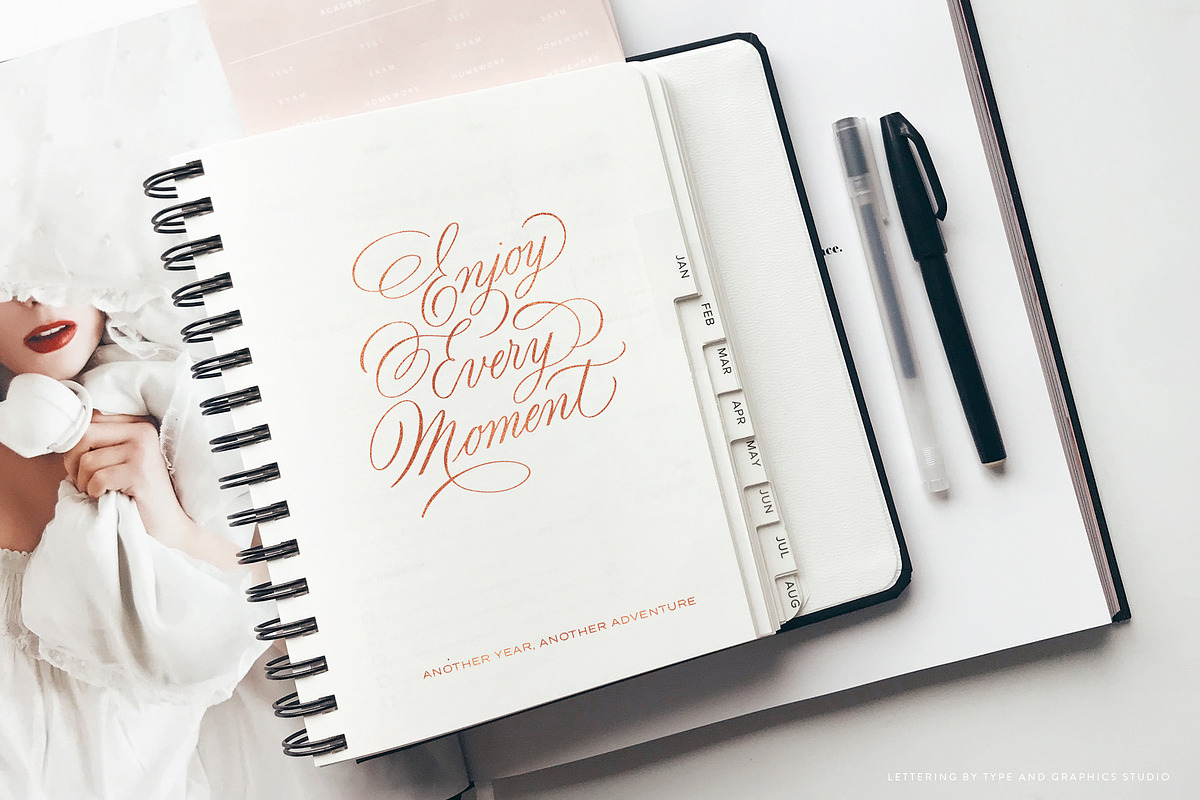 ACADEMIC
TEST
EXAM
TEST
EXAM
HOMEWORK
TEST
EXAM
HOMEWORK
EXAM
HOMEWORK
Enjoy
Every
Moment
ANOTHER YEAR, ANOTHER ADVENTURE
JAN
FEB
MAR
APR
MAY
JUN
JUL
AUG
LETTERING BY TYPE AND GRAPHICS STUDIO